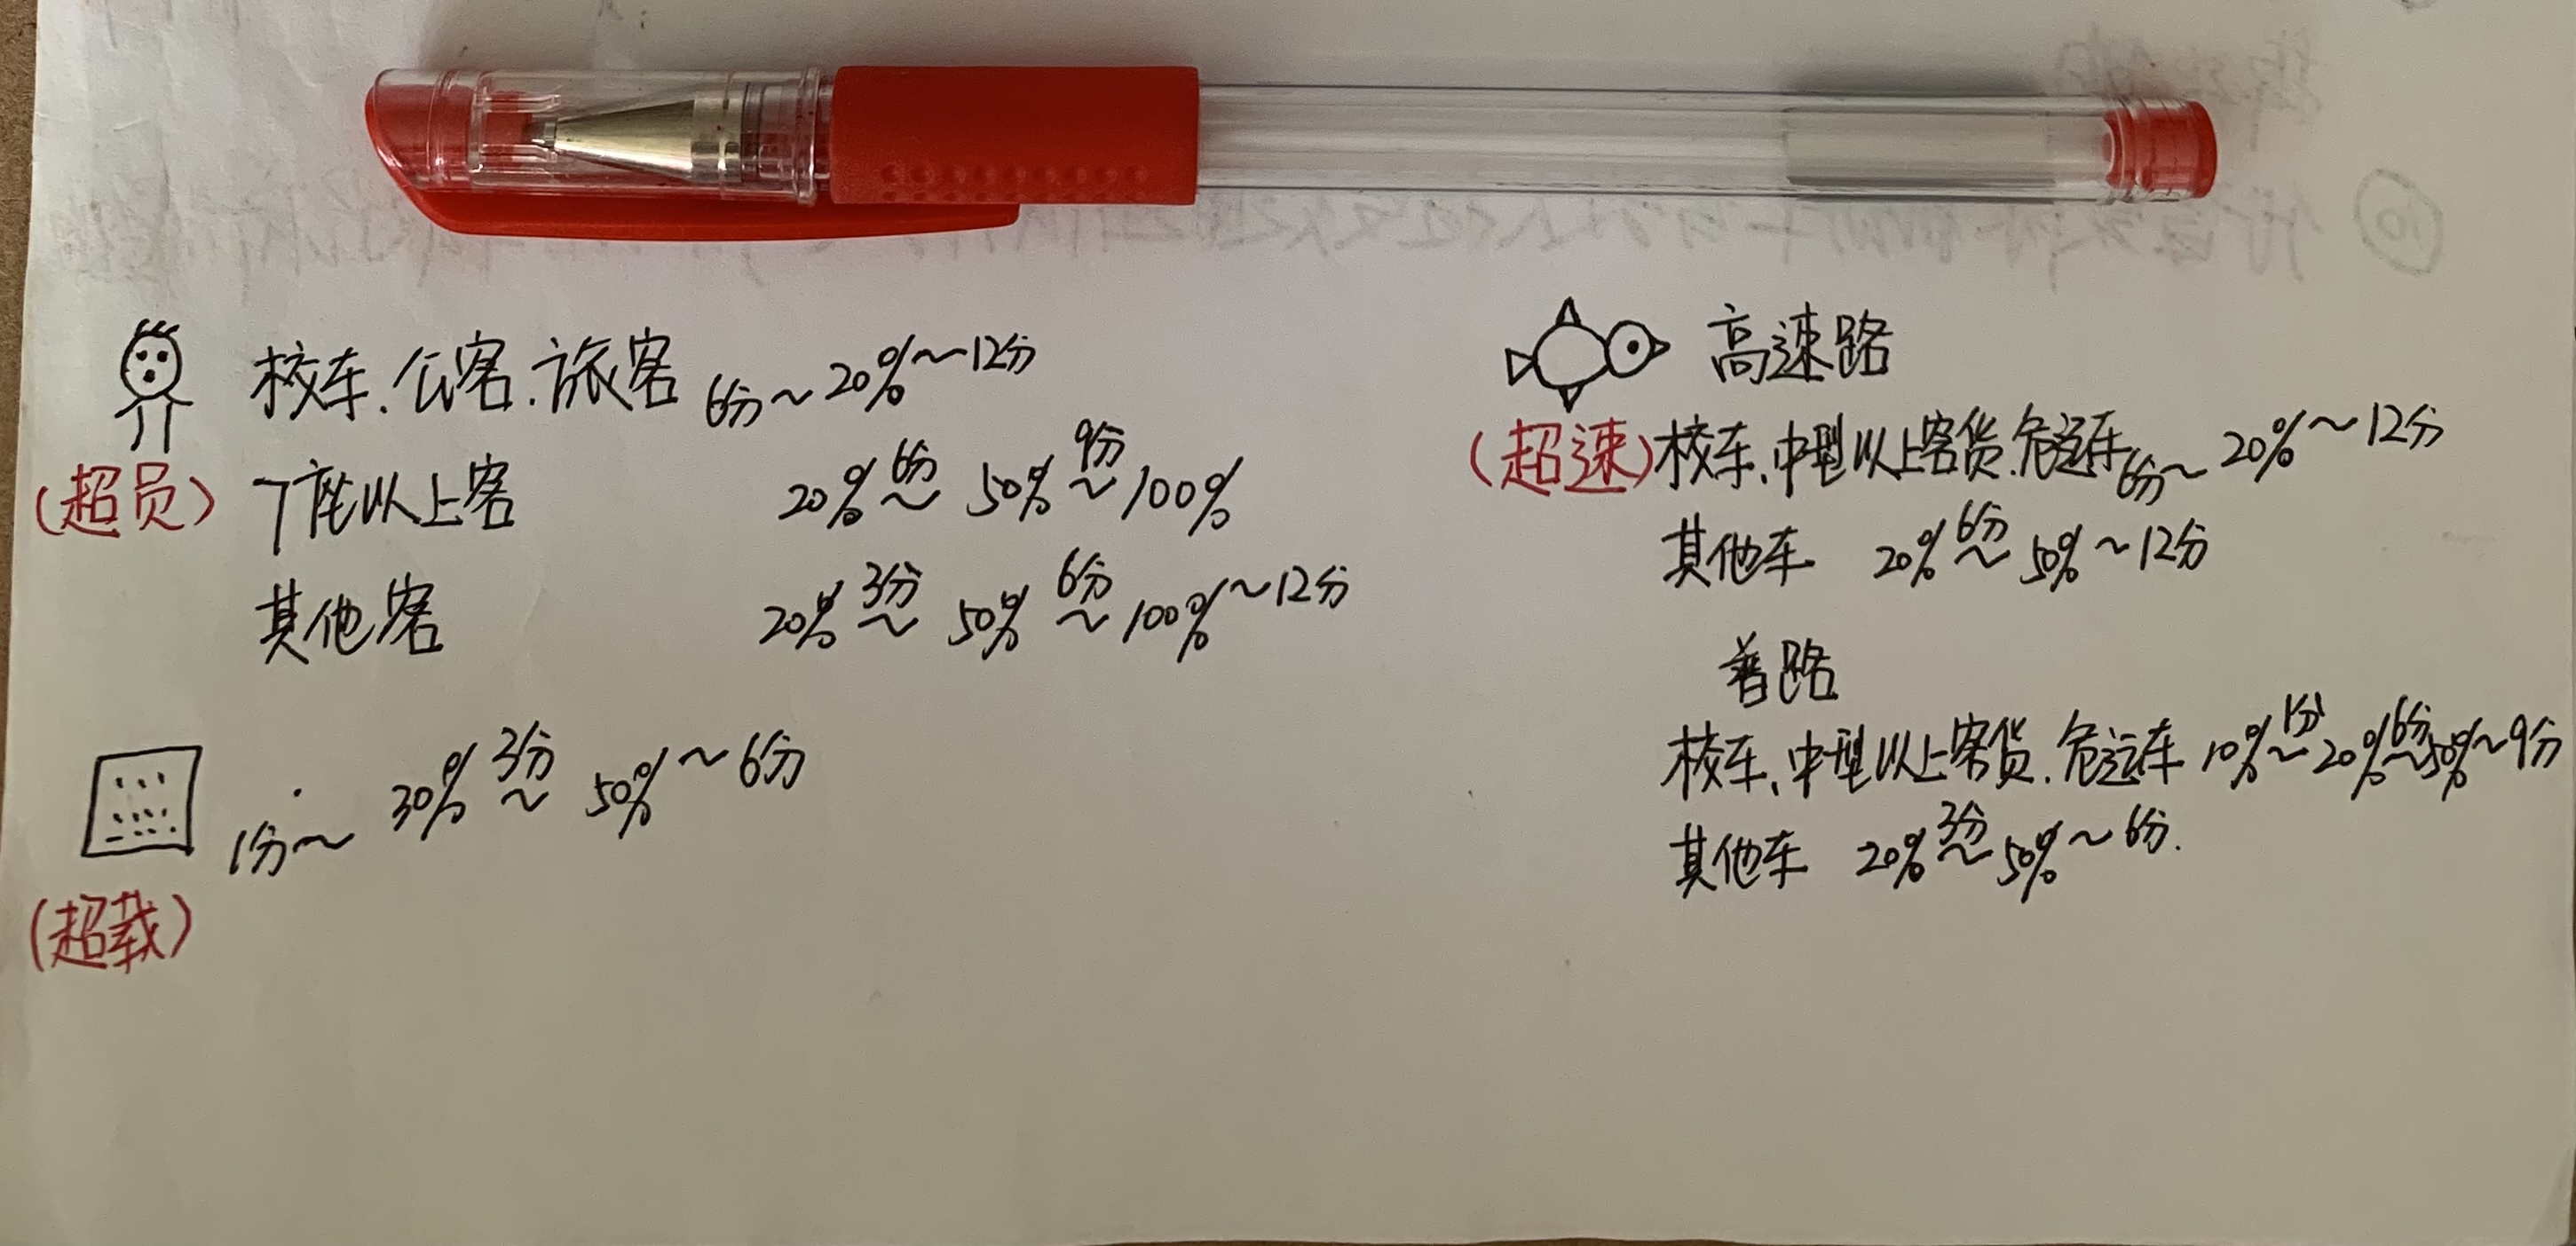 校车.公客.旅客 6分~20%~12分
(超员) 7座以上客 20% 6分~ 50% 9分~ 100%
其他客 20% 3分~ 50% 6分~ 100%~12分
1分~ 30% 3分~ 50%~6分
(超载)
高速路
(超速)校车.中型以上客货.危运车 6分~ 20%~12分
其他车 20% 6分~ 50%~12分
普路
校车、中型以上客货.危运车 10% 1分~ 20% 6分~ 50%~9分
其他车 20% 3分~ 50%~6分.
10